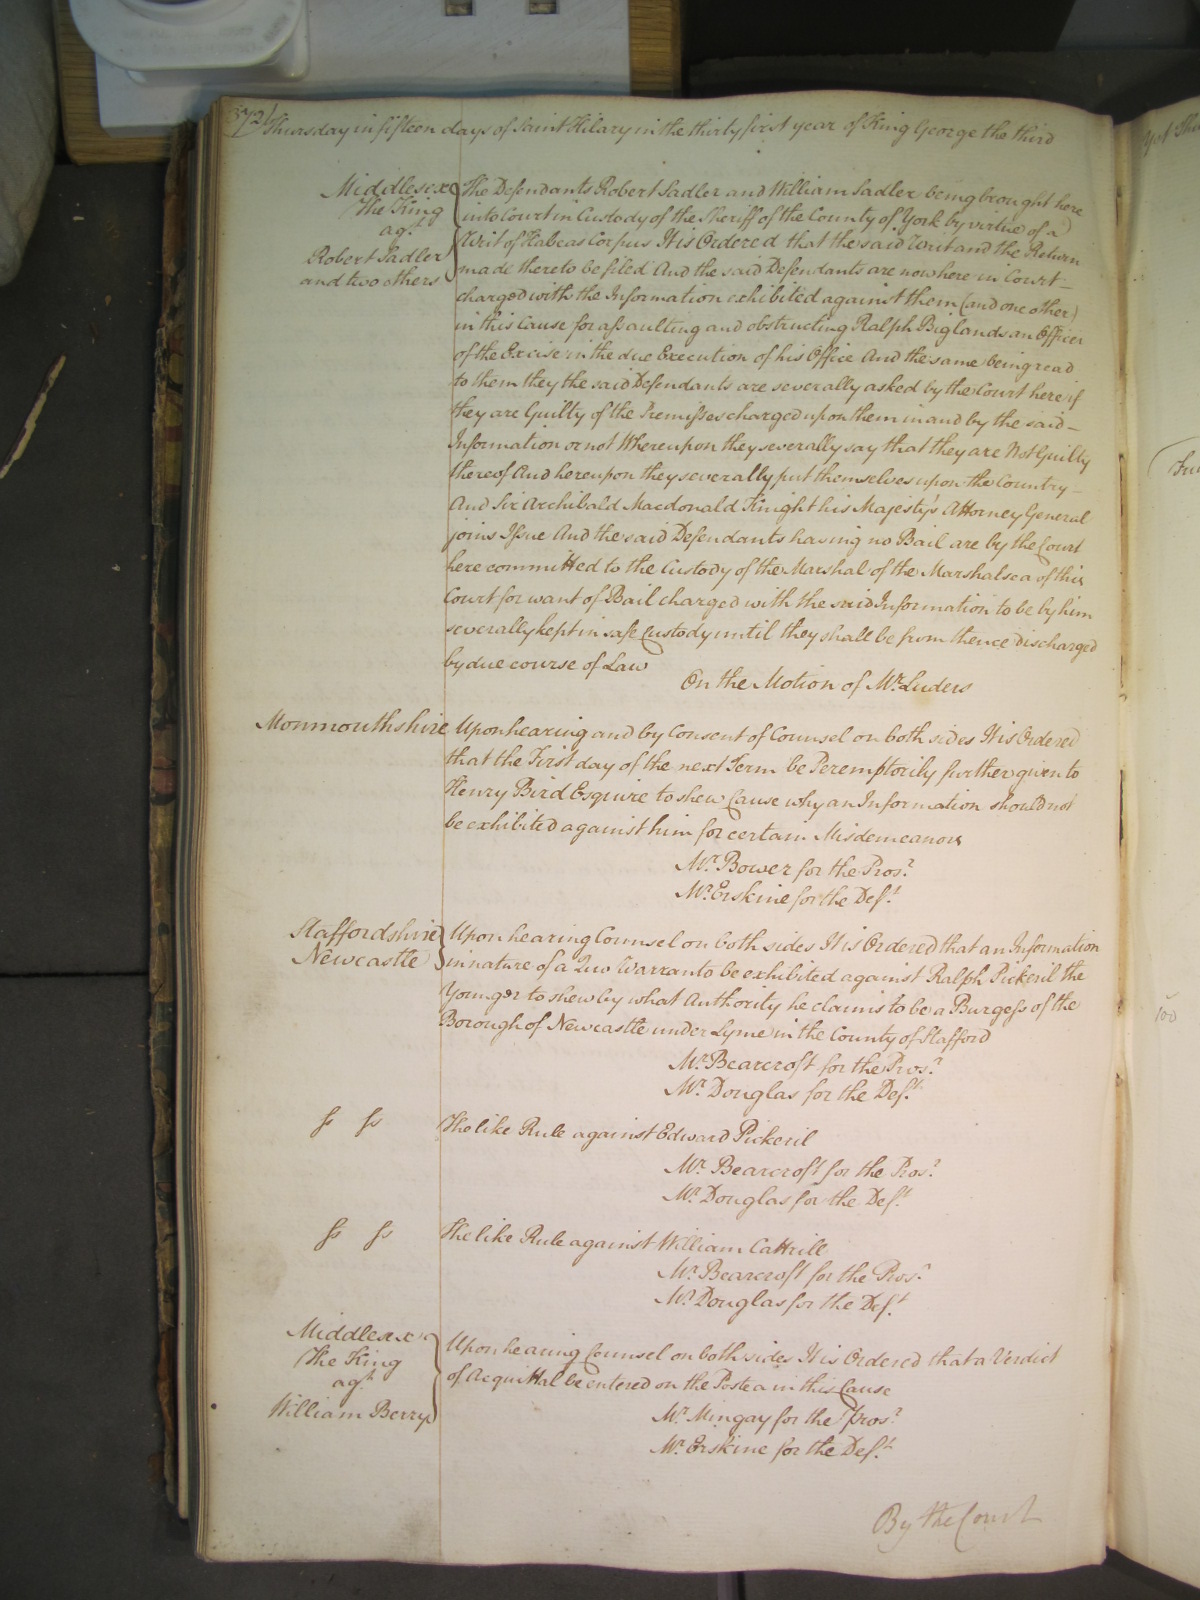 372 Thursday in fifteen days of Saint Hilary in the thirty first year of King George the third
Middlesex
The King
agt.
Robert Sadler
and two others
The Defendants Robert Sadler and William Sadler being brought here
into Court in Custody of the Sheriff of the County of York by virtue of a
Writ of Habeas Corpus It is Ordered that the said Writ and the Return
made thereto be filed And the said Defendants are now here in Court
charged with the Information exhibited against them (and one other)
in this Cause for assaulting and obstructing Ralph Biglands an Officer
of the Excise in the due Execution of his Office And the same being read
to them they the said Defendants are severally asked by the Court here if
they are Guilty of the Premisses charged upon them in and by the said
Information or not Whereupon they severally say that they are Not Guilty
thereof And hereupon they severally put themselves upon the Country
And Sir Archibald Macdonald Knight his Majesty's Attorney General
joins Issue And the said Defendants having no Bail are by the Court
here committed to the Custody of the Marshal of the Marshalsea of this
Court for want of Bail charged with the said Information to be by him
severally kept in safe Custody until they shall be from thence discharged
by due course of Law
On the Motion of Mr. Luders
Monmouthshire Upon hearing and by Consent of Counsel on both sides It is Ordered
that the First day of the next Term be Peremptorily further given to
Henry Bird Esquire to shew Cause why an Information should not
be exhibited against him for certain Misdemeanors
Mr. Bower for the Prosr.
Mr. Erskine for the Deft.
Staffordshire
Newcastle
Upon hearing Counsel on both sides It is Ordered that an Information
in nature of a Quo Warranto be exhibited against Ralph Pickeril the
Younger to shew by what Authority he claims to be a Burgess of the
Borough of Newcastle under Lyme in the County of Stafford
Mr. Bearcroft for the Prosr.
Mr. Douglas for the Deft.
ss ss The like Rule against Edward Pickeril
Mr. Bearcroft for the Prosr.
Mr. Douglas for the Deft.
ss ss The like Rule against William Cattrill
Mr. Bearcroft for the Prosr.
Mr. Douglas for the Deft.
Middlesex
The King
agt.
William Berry
Upon hearing Counsel on both sides It is Ordered that a Verdict
of Acquittal be entered on the Postea in this Cause
Mr. Mingay for the Prosr.
Mr. Erskine for the Deft.
By the Court
100